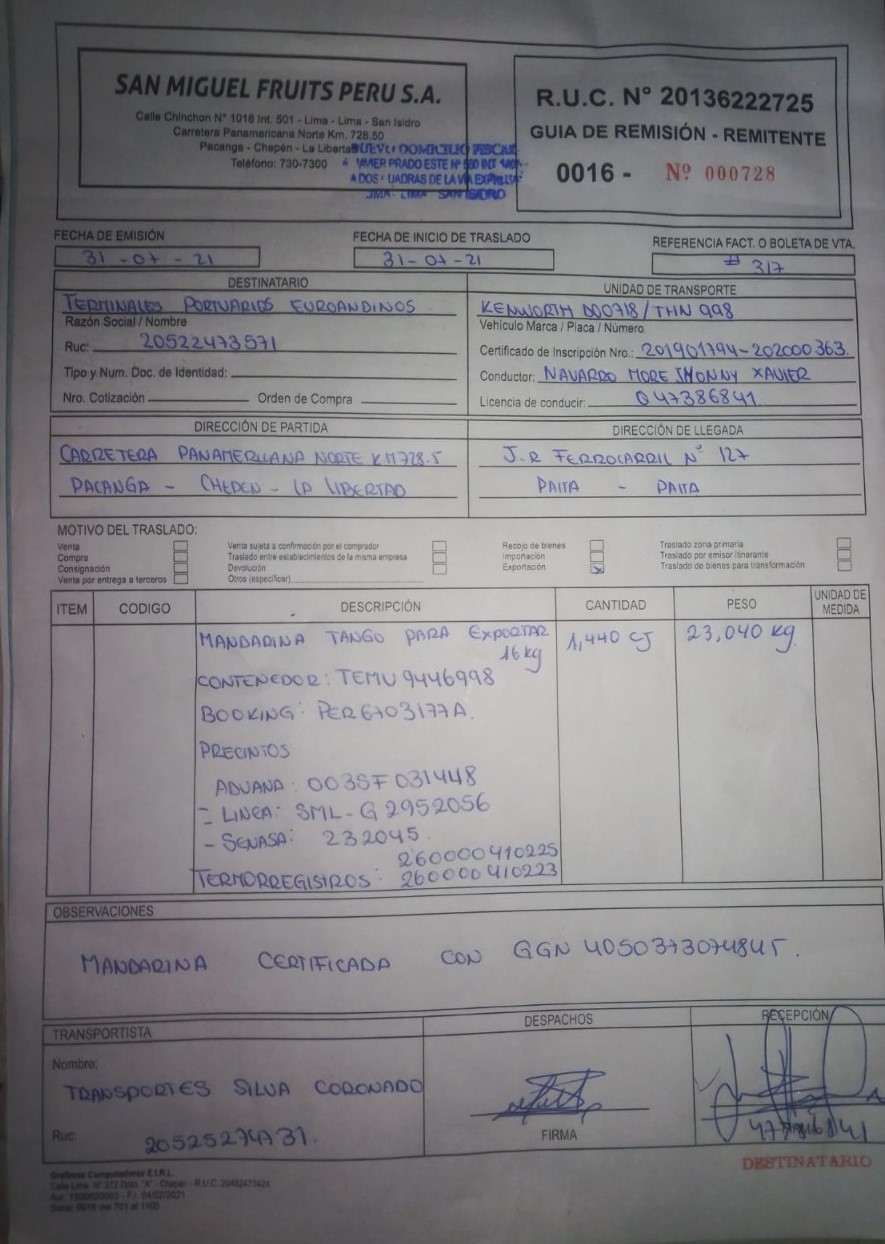 SAN MIGUEL FRUITS PERU S.A.
Calle Chinchon N° 1018 Int. 501 - Lima - Lima - San Isidro
Carretera Panamericana Norte Km. 728.50
Pacanga - Chepén - La Libertad
Teléfono: 730-7300
NUEVO DOMICILIO FISCAL
PRADO ESTE N°
CUADRAS DE LA VIA EXPRESA
LIMA - LIMA SAN ISIDRO
R.U.C. N° 20136222725
GUIA DE REMISIÓN - REMITENTE
0016 - Nº 000728
FECHA DE EMISIÓN
31 - 07 - 21
FECHA DE INICIO DE TRASLADO
31 - 07 - 21
REFERENCIA FACT. O BOLETA DE VTA.
# 317
DESTINATARIO
TERMINALES PORTUARIOS EUROANDINOS
Razón Social / Nombre
Ruc: 20522473571
Tipo y Num. Doc. de Identidad:
Nro. Cotización Orden de Compra
UNIDAD DE TRANSPORTE
KENWORTH D00718 / THN 998
Vehículo Marca / Placa / Número
Certificado de Inscripción Nro.: 201901794-202000363.
Conductor: NAVARRO MORE JHONNY XAVIER
Licencia de conducir: Q47386841
DIRECCIÓN DE PARTIDA
CARRETERA PANAMERICANA NORTE KM728.5
PACANGA - CHEPEN - LA LIBERTAD
DIRECCIÓN DE LLEGADA
J.R FERROCARRIL N° 127
PAITA - PAITA
MOTIVO DEL TRASLADO:
Venta
Compra
Consignación
Venta por entrega a terceros
Venta sujeta a confirmación por el comprador
Traslado entre establecimientos de la misma empresa
Devolución
Otros (especificar)
Recojo de bienes
Importación
Exportación
Traslado zona primaria
Traslado por emisor itinerante
Traslado de bienes para transformación
ITEM CODIGO DESCRIPCIÓN CANTIDAD PESO UNIDAD DE MEDIDA
MANDARINA TANGO PARA EXPORTAR 1,440 CJ 23,040 kg.
16 kg
CONTENEDOR: TEMU 9446998
BOOKING: PER6703177A.
PRECINTOS
ADUANA: 003SF031448
- LINEA: SML-G 2952056
- SENASA: 232045.
260000410225
TERMORREGISTROS: 260000410223
OBSERVACIONES
MANDARINA CERTIFICADA CON GGN 4050373074845.
TRANSPORTISTA
Nombre:
TRANSPORTES SILVA CORONADO
Ruc: 20525274731.
DESPACHOS
FIRMA
RECEPCIÓN
DESTINATARIO
Graficas Computadoras E.I.R.L.
Calle Lima N° 372 Dpto. "A" - Chepen - R.U.C. 20482473424
Serie: 0016 del 701 al 1100